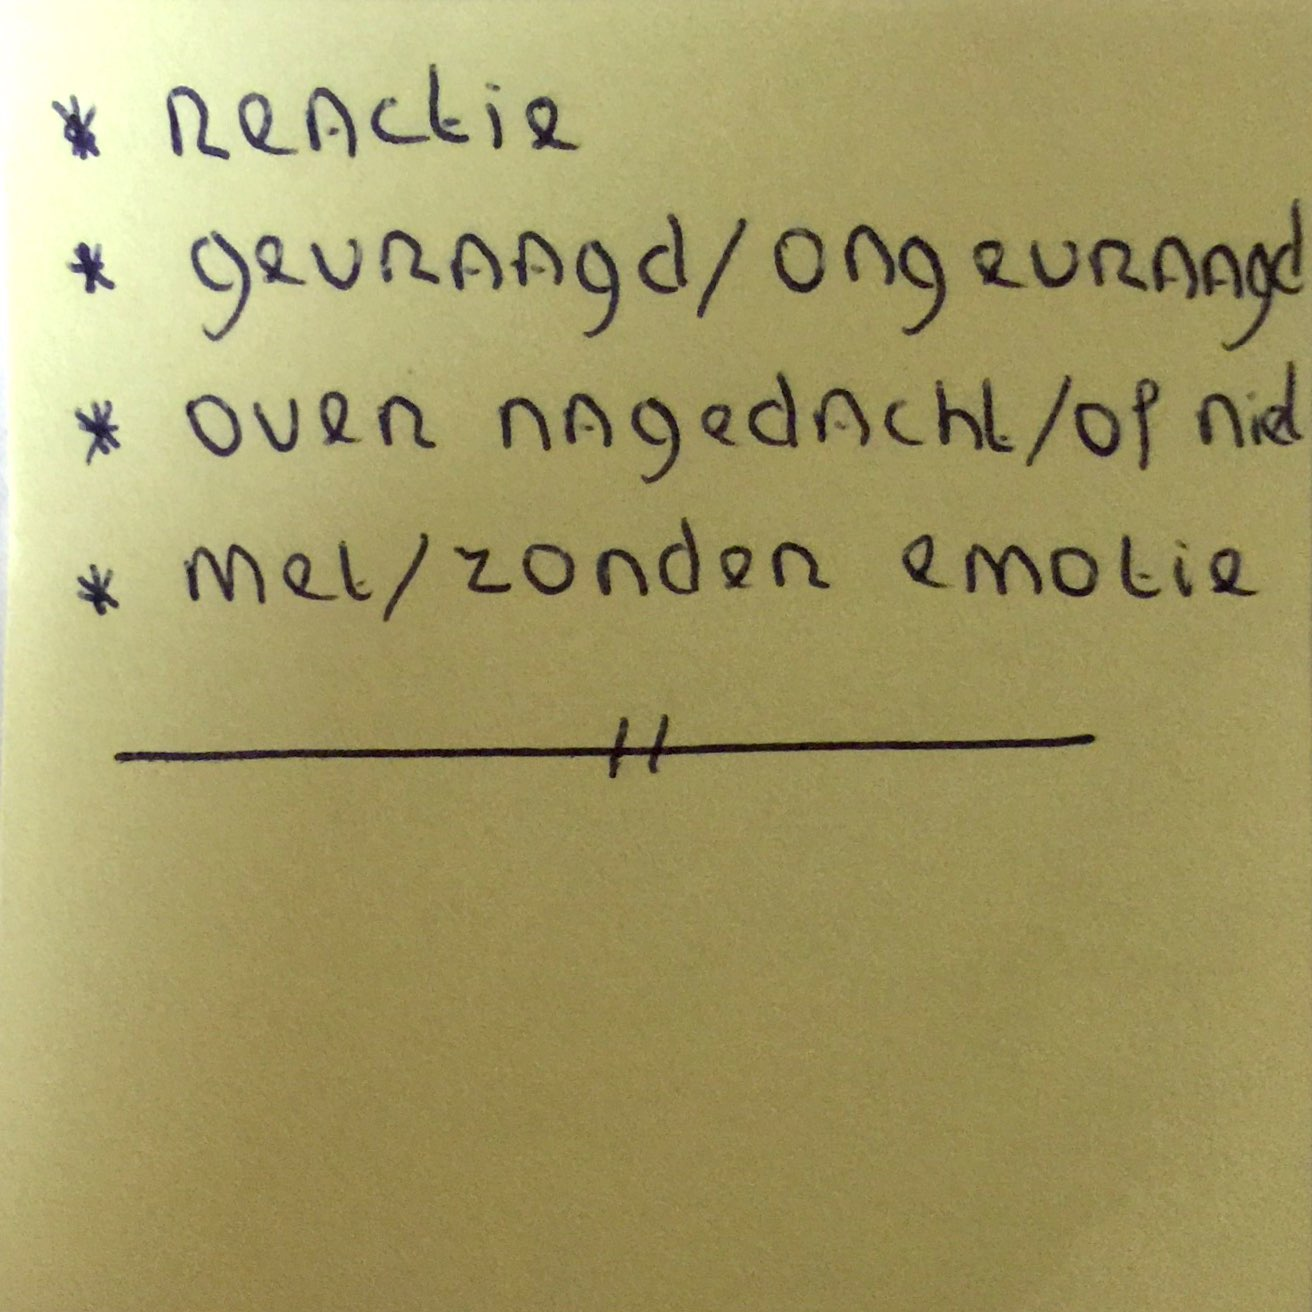 * Reactie
* gevraagd/ongevraagd
* over nagedacht/of niet
* Met/zonder emotie